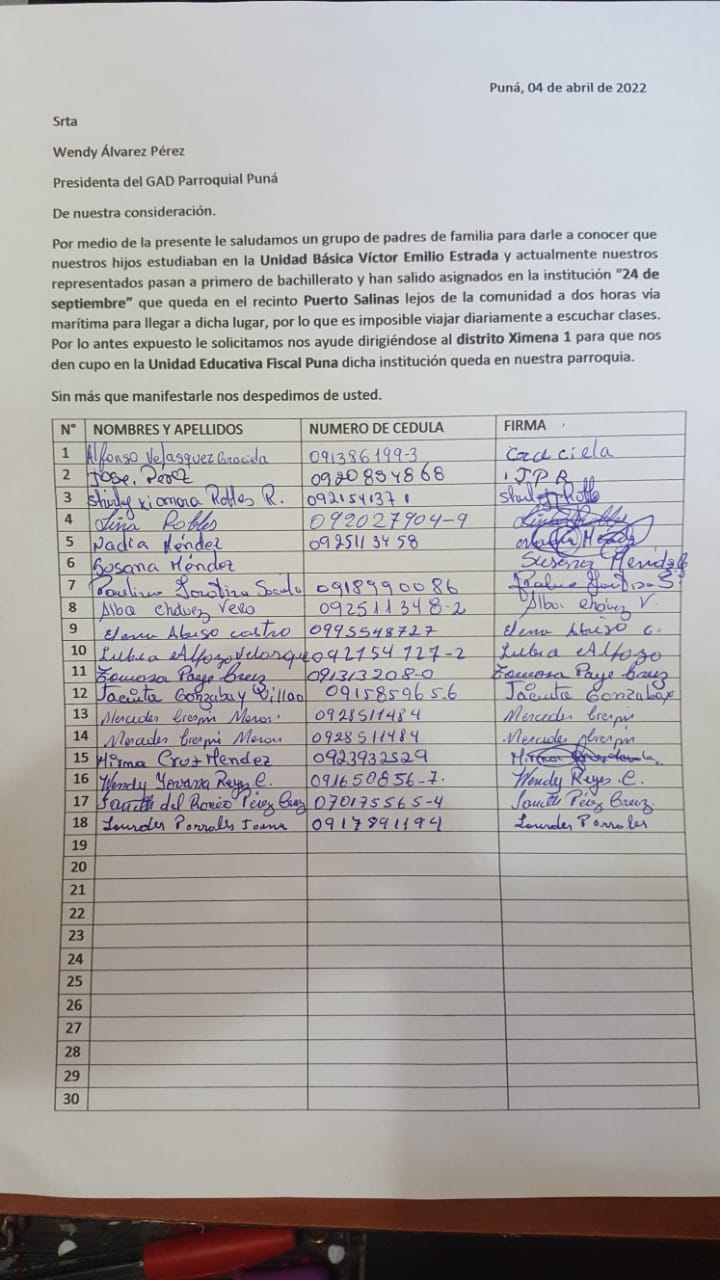 Puná, 04 de abril de 2022
Srta
Wendy Álvarez Pérez
Presidenta del GAD Parroquial Puná
De nuestra consideración.
Por medio de la presente le saludamos un grupo de padres de familia para darle a conocer que
nuestros hijos estudiaban en la Unidad Básica Víctor Emilio Estrada y actualmente nuestros
representados pasan a primero de bachillerato y han salido asignados en la institución "24 de
septiembre" que queda en el recinto Puerto Salinas lejos de la comunidad a dos horas vía
marítima para llegar a dicha lugar, por lo que es imposible viajar diariamente a escuchar clases.
Por lo antes expuesto le solicitamos nos ayude dirigiéndose al distrito Ximena 1 para que nos
den cupo en la Unidad Educativa Fiscal Puna dicha institución queda en nuestra parroquia.
Sin más que manifestarle nos despedimos de usted.
N° NOMBRES Y APELLIDOS NUMERO DE CEDULA FIRMA
1 Alfonso Velasquez 091386199-3
2 Jose, Perez 0920854868 JPR
3 Shirly xiomara Robles R. 092154137 1
4 Robles 092027904-9
5 Nadia Méndez 0925113458
6 Susana Méndez Susana
7 0918990086
8 Alba chavez Vera 092511348-2 Alba. chavez V.
9 Elena castro 0995548727 Elena c.
10 Lubia 092154727-2 Lubia Alfozo
11 091313208-0
12 Jacinta Gonzabay Villao 09158596 5.6 Jacinta Gonzabay
13 Mercedes Crespin 0928511484 Mercedes Crespin
14 Mercedes Crespin 0928511484 Mercedes Crespin
15 Mirma Cruz Mendez 0923932529
16 Wendy Yovana Reyes C. 091650856-7. Wendy Reyes C.
17 del Rocio Pérez Cruz 070175565-4 Pérez Cruz
18 Lourdes Porrales 0917891194 Lourdes Porrales
19
20
21
22
23
24
25
26
27
28
29
30